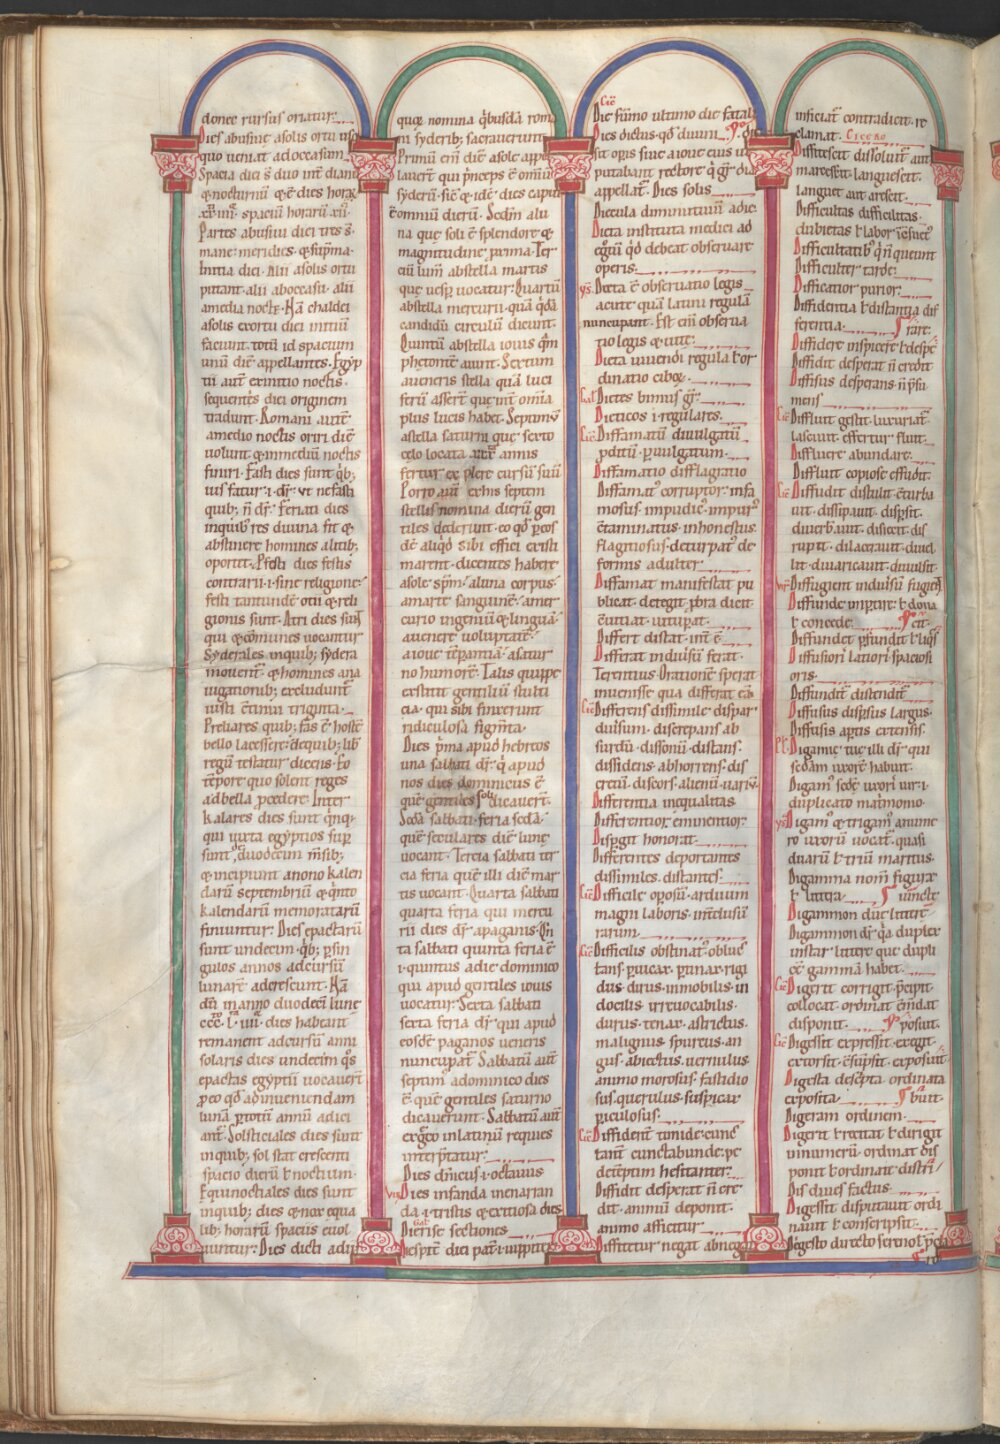 donec rursus oriatur.
Dies abusiuę asolis ortu usq;
quo ueniat adoccasum.
Spacia diei s̄ duo int̄ dianū
& nocturnū & ē dies horaꝝ
xx.iiii. spaciū horarū xii.
Partes abusiui diei tres s̄.
mane. meridies. & sup̄ma.
Initia diei. Alii asolis ortu
putant. alii aboccasu. alii
amedia nocte. Nā chaldei
asolis exortu diei initiū
faciunt. totū id spacium
unū diē appellantes. Egyp
tii autē exinitio noctis.
sequentis diei originem
tradunt. Romani autē
amedio noctis oriri diē
uolunt & inmediū noctis
finiri. Fasti dies sunt q̄b;
ius fatur. i. dr̄. ut nefasti
quib; n̄ dr̄. Feriati dies
inquib; res diuina fit &
abstinere homines alitib;
oportet. Pfesti dies festis
contrarii. i. sine religione.
festi tantundē otii & reli
gionis sunt. Atri dies sunt
qui & cōmunes uocantur
Syderales inquib; sydera
mouent̄ & homines ana
uigationib; excludunt̄
iusti cōtinui triginta.
Preliares quib; fas ē hostē
bello lacessere. dequib; lib̄
regū testatur dicens. Eo
tēpore quo solent reges
adbella p̄cedere. Inter
kalares dies sunt q̄nq;
qui iuxta egyptios sup̄
sunt duodecim m̄sib;
& incipiunt anono kalen
darū septembriū & q̄nto
kalendarū memoratarū
finiuntur. Dies epactarū
sunt undecim. q̄b; p̄ sin
gulos annos adcursū
lunarē adcrescunt. Nā
dū in anno duodeci lunę
ccc. l. iiii. dies habeant
remanent adcursū anni
solaris dies undecim q̄s
epactas egyptii uocauer̄
p̄ eo qd̄ adinueniendam
lunā p̄ totū annū adici
ant̄. Solsticiales dies sunt
inquib; sol stat crescenti
spacio dierū ł noctium.
Equinoctiales dies sunt
inquib; dies & nox equa
lib; horarū spaciis euol
uuntur. Dies dicti adiis
quoꝝ nomina q̄busdā rom̄
ni syderib; sacrauerunt
Primū em̄ diē asole appel
lauer̄ qui princeps ē omniū
syderū. sic & idē dies caput
ē omniū dierū. Scdm̄ alu
na que soli ē splendore &
magnitudine prima. Ter
ciū lum̄ abstella martis
que uesp̄ uocatur. Quartū
abstella mercurii. quā q̄dā
candidū circulū dicunt.
Quintū abstella iouis q̄m
phetontē aiunt. Sextum
aueneris stella quā luci
ferū asser̄t que int̄ omīa
plus lucis habet. Septimū
astella saturni que sexto
celo locata xxx annis
fertur explere cursū suū
Porro aut̄ exhis septem
stellis nomina dierū gen
tiles dederunt eo qd̄ p̄ eos
dē aliqd̄ sibi effici existi
marent. dicentes habere
asole spm̄. aluna corpus.
amarte sanguinē. amer
curio ingeniū & linguā
auenere uoluptatē.
aioue tēp̄antiā. asatur
no humorē. Talis quippe
exstitit gentiliū stulti
cia. qui sibi finxerunt
ridiculosa figm̄ta.
Dies p̄ma apud hebreos
una sabbati dr̄. q̄ apud
nos dies dominicus ē
quē gentiles soli dicauer̄.
Sedā sabbati. feria scdā.
quē seculares diē lunę
uocant. Tercia sabbati ter
cia feria quē illi diē mar
tis uocant. Quarta sabbati
quarta feria qui mercu
rii dies dr̄ apaganis. Qn̄
ta sabbati quinta feria ē
i. quintus adie dominico
qui apud gentiles iouis
uocatur. Sexta sabbati
sexta feria dr̄. qui apud
eosdē paganos ueneris
nuncupat̄. Sabbatū aut̄
septim' adominico dies
ē quē gentiles saturno
dicauerunt. Sabbatū aut̄
exgreco inlatinū requies
interp̄tatur.
Dies dn̄icus. i. octauus
Dies infanda inenarran
da. i. tristis & exitiosa dies
Dierise sectiones
Despit̄ diei pat̄. i. iuppiter
Die summo ultimo die fatali
Dies dictus qd̄ diuini.
sit op̄is siue aioue eius ut
putabant rectore q̄ gr̄ dia
appellat̄. Dies solis
Diecula diminutiuū adie
Dieta instituta medici ad
egrū qd̄ debeat obseruare
operis.
Dieta ē obseruatio legis
acute quā latini regulā
nuncupant. Est em̄ obserua
tio legis & uite.
Dieta uiuendi regula ł or
dinatio ciboꝝ.
Dietes bimus gr̄.
Dieticos. i. regulares.
Diffamatū diuulgatū
p̄ditū. p̄uulgatum.
Diffamatio difflagratio
Diffamat' corruptor. infa
mosus. impudic'. impur'
ctaminatus. inhonestus.
flagitiosus. deturpat'. de
formis. adulter
Diffamat manifestat pu
blicat. detegit. p̄bra dicit
cūtiat. uituperat.
Differt distat. int̄ ē
Differat indiuisū ferat.
Terentius. Orationē sperat
inuenisse qua differat eā
Differens dissimile dispar
diuisum. discrepans ab
surdū. dissonū. distans.
dissidens. abhorrens. dis
cretū. discors. alienū. uariū
Differentia inequalitas.
Differentior. eminentior.
Dispgit honorat.
Differentes deportantes
dissimiles. distantes.
Difficile op̄osū. arduum
magni laboris. uīdusū
rarum.
Difficilis obstinat'. obluc
tans. p̄uicax. p̄tinax. rigi
dus. durus. inmobilis. in
docilis. irreuocabilis.
durus. tenax. astrictus.
malignus. spurcus. an
gus. abiectus. uernulus
animo morosus. fastidio
sus. querulus. suspicax
p̄iculosus.
Diffident̄ timide. cunc
tant̄. cunctabunde. pe
detēptim. hesitanter.
Diffidit desperat n̄ cre
dit. animū deponit.
animo afficitur
Diffitetur negat abnegat
inficiat̄ contradicit. re
clamat.
Diffitescit dissoluit̄ aut
marcescit. languescit.
languet aut arescit.
Difficultas difficilitas.
dubietas ł labor
Difficultatib; q̄ n̄ queunt
Difficulter tarde.
Difficatior purior.
Diffidentia ł distantia dif
ferentia.
Diffidere inspicere ł despe
Diffidit desperat n̄ credit
Diffisus desperans. n̄ p̄su
mens
Diffluit gestit. luxuriat̄.
lasciuit. effertur fluit.
Diffluere abundare.
Diffluit copiose effudit.
Diffudit distulit. cturba
uit. dissipauit. disp̄sit.
diuerb̄auit. disiecit. dis
rupit. dilacerauit. diuel
lit. diuaricauit. diuulsit.
Diffugient indiuisū fugient
Diffunde impartit ł dona
ł concede.
Diffundet p̄fundit ł liq̄f
Diffusiori latiori. spaciosi
oris.
Diffundit̄ distendit̄
Diffusus disp̄sus largus.
Diffusis apertis extensis.
Digamię tue illi dr̄. qui
scdam uxorē habuit.
Digam' scdę uxori uir. i.
duplicato matrimonio.
Digam' & trigam' anume
ro uxorū uocat̄. quasi
duarū ł triū maritus.
Digamma nom̄ figurę
ł littera.
Digammon due litterę
Digammon dr̄ q̄a duplex
instar littere que dupli
cē gammā habet.
Digerit corrigit. p̄cipit.
collocat. ordinat. ēm̄dat
disponit.
Digessit expressit. exegit.
extorsit. csup̄sit. exposuit.
Digesta descripta. ordinata
exposita.
Digeram ordinem.
Digerit ł recitat ł dirigit
innumerū. ordinat. dis
ponit ł ordinat̄. distri/
Dis diues factus.
Digessit disputauit ordi
nauit ł conscripsit.
Digesto directo sereno ł p̄cla